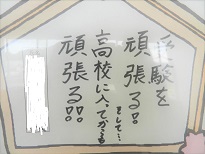 受験を
頑張る!!
そして…
高校に入ってからも
頑張る!!!